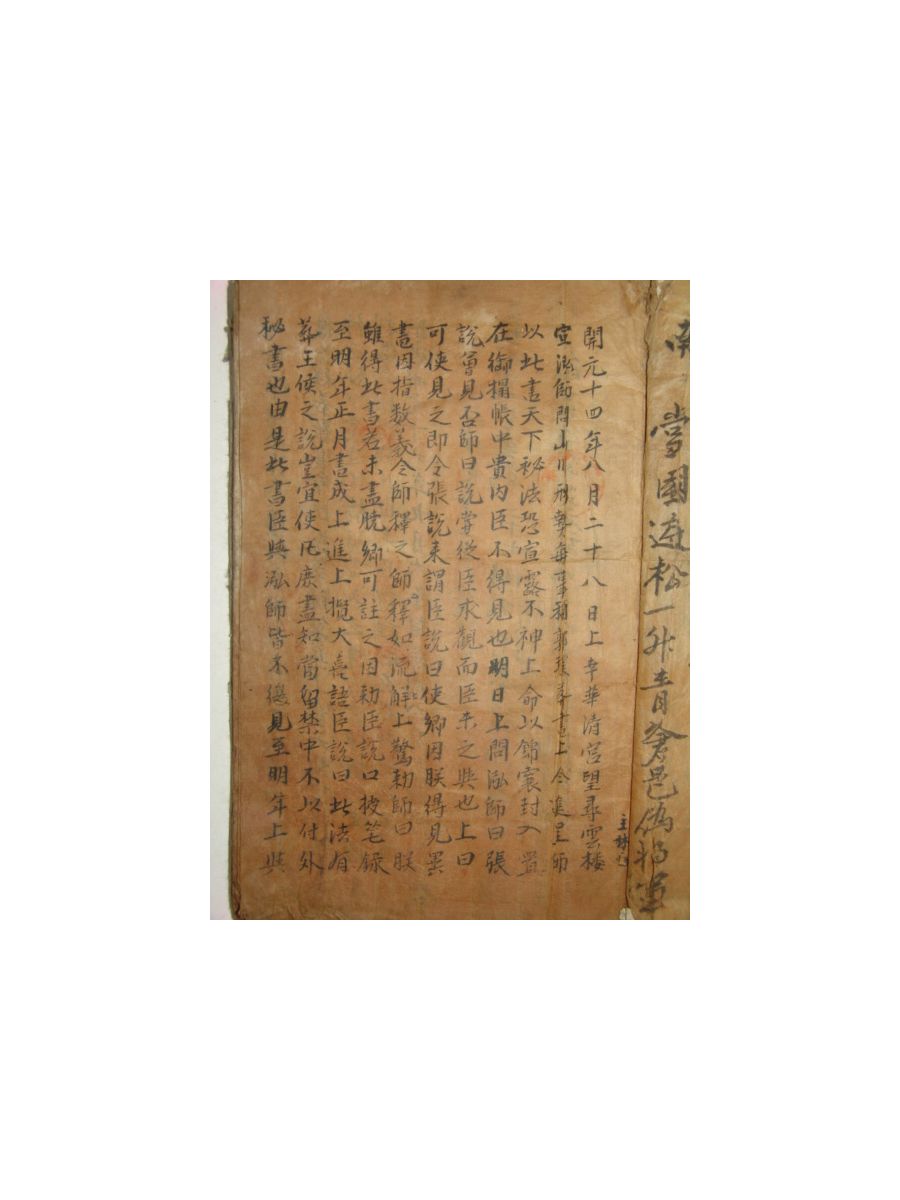 當國遊松一升青
開元十四年八月二十八日上幸華清宮望尋雲樓
宣泓師問山川形勢每事稱郭璞葬書上令進呈師
以此書天下秘法恐宣露不神上命以錦裹封入置
在御榻帳中貴內臣不得見也明日上問泓師曰張
說曾見否師曰說嘗從臣求觀而臣未之與也上曰
可使見之即令張說來謂臣說曰使卿因朕得見異
書因指数義令師釋之師釋如流解上驚勅師曰朕
雖得此書若未盡曉卿可註之因勅臣說口授笔錄
至明年正月書成上進上攬大喜語臣說曰此法有
葬王侯之說豈宜使凡庶盡知當留禁中不以付外
秘書也由是此書臣與泓師皆不得見至明年上與